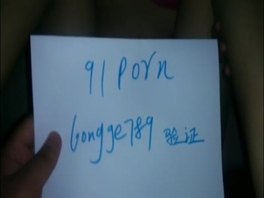 91 Porn
Gongge789 验证